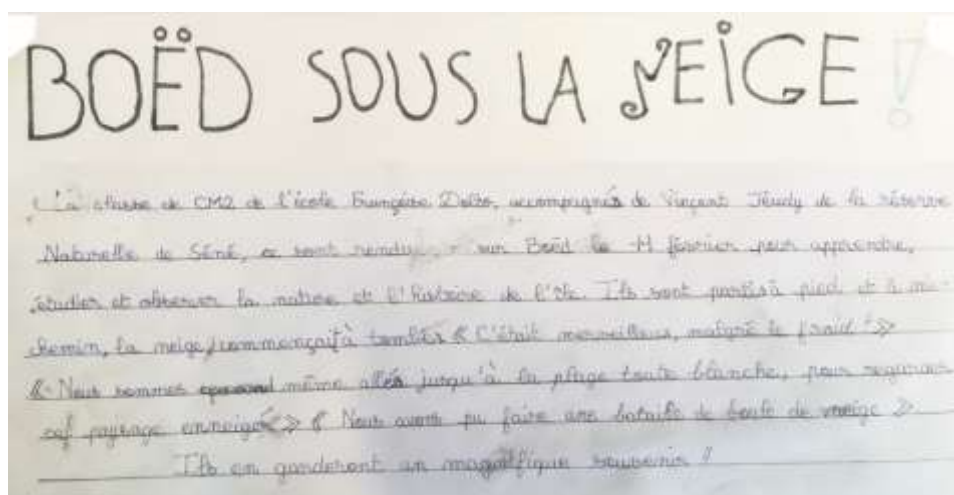 BOËD SOUS LA NEIGE !
La classe de CM2 de l'école Françoise Dolto, accompagnés de Vincent Jeudy de la réserve
Naturelle de Séné, se sont rendu sur Boëd le 11 février pour apprendre,
étudier et observer la nature et l'histoire de l'île. Ils sont partis à pied et à mi-
chemin, la neige commençait à tomber « C'était merveilleux, malgré le froid ! »
« Nous sommes même allés jusqu'à la plage toute blanche, pour regarder
cet paysage enneigé » « Nous avons pu faire une bataille de boule de neige »
Ils en garderont un magnifique souvenir !